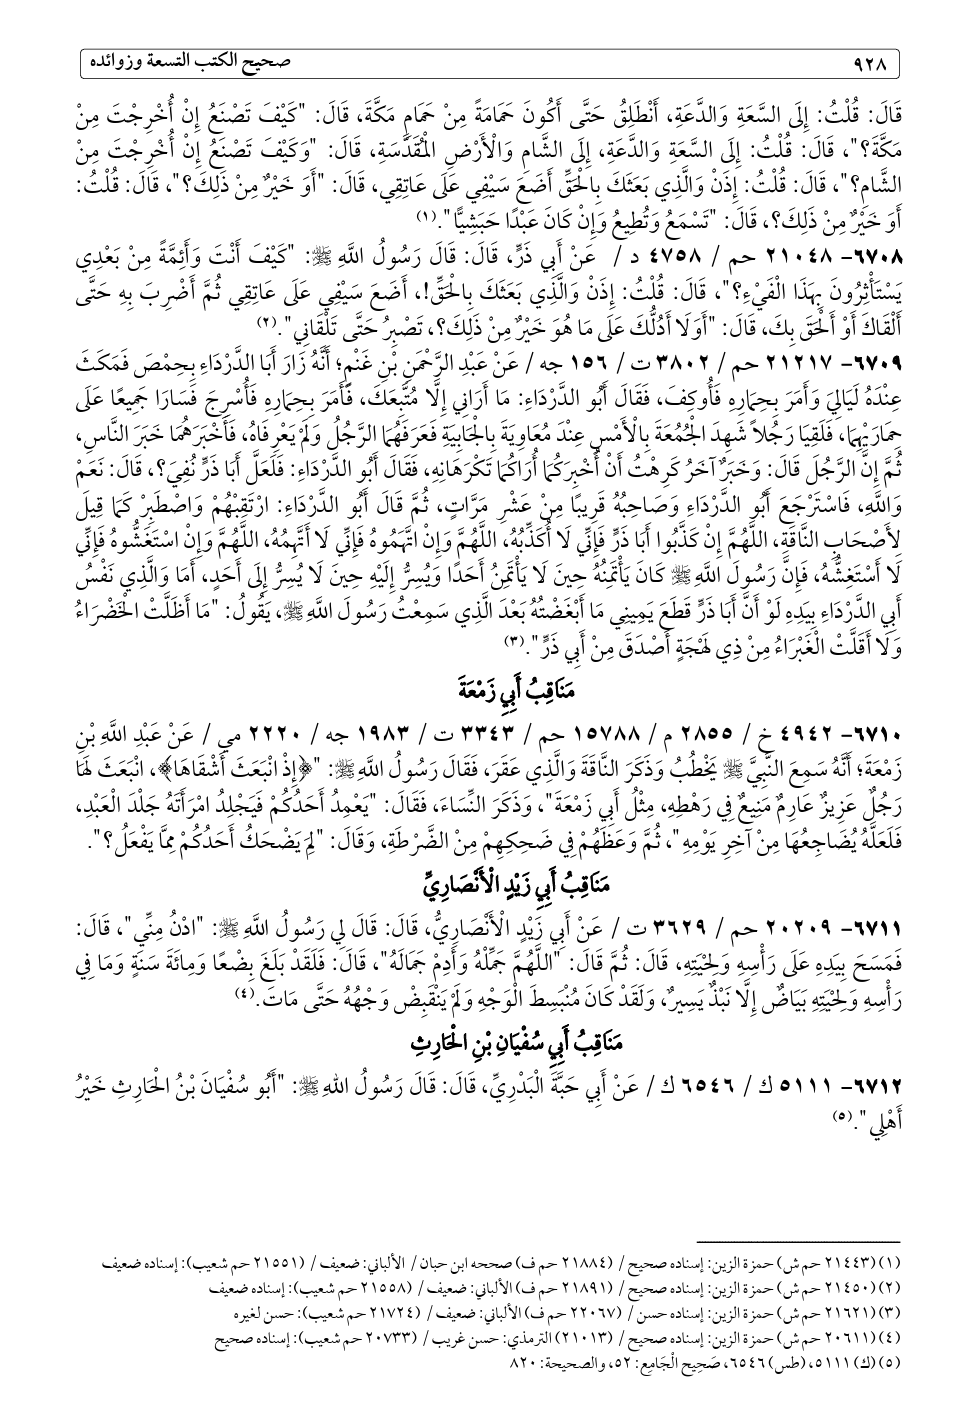 ٩٢٨ صحيح الكتب التسعة وزوائده
قَالَ: قُلْتُ: إِلَى السَّعَةِ وَالدَّعَةِ، أَنْطَلِقُ حَتَّى أَكُونَ حَمَامَةً مِنْ حَمَامِ مَكَّةَ، قَالَ: "كَيْفَ تَصْنَعُ إِنْ أُخْرِجْتَ مِنْ
مَكَّةَ؟"، قَالَ: قُلْتُ: إِلَى السَّعَةِ وَالدَّعَةِ، إِلَى الشَّامِ وَالْأَرْضِ الْمُقَدَّسَةِ، قَالَ: "وَكَيْفَ تَصْنَعُ إِنْ أُخْرِجْتَ مِنْ
الشَّامِ؟"، قَالَ: قُلْتُ: إِذَنْ وَالَّذِي بَعَثَكَ بِالْحَقِّ أَضَعَ سَيْفِي عَلَى عَاتِقِي، قَالَ: "أَوَ خَيْرٌ مِنْ ذَلِكَ؟"، قَالَ: قُلْتُ:
أَوَ خَيْرٌ مِنْ ذَلِكَ؟، قَالَ: "تَسْمَعُ وَتُطِيعُ وَإِنْ كَانَ عَبْدًا حَبَشِيًّا".(١)
٦٧٠٨- ٢١٠٤٨ حم / ٤٧٥٨ د / عَنْ أَبِي ذَرٍّ، قَالَ: قَالَ رَسُولُ اللَّهِ ﷺ: "كَيْفَ أَنْتَ وَأَئِمَّةً مِنْ بَعْدِي
يَسْتَأْثِرُونَ بِهَذَا الْفَيْءِ؟"، قَالَ: قُلْتُ: إِذَنْ وَالَّذِي بَعَثَكَ بِالْحَقِّ!، أَضَعَ سَيْفِي عَلَى عَاتِقِي ثُمَّ أَضْرِبَ بِهِ حَتَّى
أَلْقَاكَ أَوْ أَلْحَقَ بِكَ، قَالَ: "أَوَلَا أَدُلُّكَ عَلَى مَا هُوَ خَيْرٌ مِنْ ذَلِكَ؟، تَصْبِرُ حَتَّى تَلْقَانِي".(٢)
٦٧٠٩- ٢١٢١٧ حم / ٣٨٠٢ ت / ١٥٦ جه / عَنْ عَبْدِ الرَّحْمَنِ بْنِ غَنْمٍ؛ أَنَّهُ زَارَ أَبَا الدَّرْدَاءِ بِحِمْصَ فَمَكَثَ
عِنْدَهُ لَيَالِيَ وَأَمَرَ بِحِمَارِهِ فَأُوكِفَ، فَقَالَ أَبُو الدَّرْدَاءِ: مَا أَرَانِي إِلَّا مُتَّبِعَكَ، فَأَمَرَ بِحِمَارِهِ فَأُسْرِجَ فَسَارَا جَمِيعًا عَلَى
حِمَارَيْهِمَا، فَلَقِيَا رَجُلاً شَهِدَ الْجُمُعَةَ بِالْأَمْسِ عِنْدَ مُعَاوِيَةَ بِالْجَابِيَةِ فَعَرَفَهُمَا الرَّجُلُ وَلَمْ يَعْرِفَاهُ، فَأَخْبَرَهُمَا خَبَرَ النَّاسِ،
ثُمَّ إِنَّ الرَّجُلَ قَالَ: وَخَبَرٌ آخَرُ كَرِهْتُ أَنْ أُخْبِرَكُمَا أُرَاكُمَا تَكْرَهَانِهِ، فَقَالَ أَبُو الدَّرْدَاءِ: فَلَعَلَّ أَبَا ذَرٍّ نُفِيَ؟، قَالَ: نَعَمْ
وَاللَّهِ، فَاسْتَرْجَعَ أَبُو الدَّرْدَاءِ وَصَاحِبُهُ قَرِيبًا مِنْ عَشْرِ مَرَّاتٍ، ثُمَّ قَالَ أَبُو الدَّرْدَاءِ: ارْتَقِبْهُمْ وَاصْطَبِرْ كَمَا قِيلَ
لِأَصْحَابِ النَّاقَةِ، اللَّهُمَّ إِنْ كَذَّبُوا أَبَا ذَرٍّ فَإِنِّي لَا أُكَذِّبُهُ، اللَّهُمَّ وَإِنْ اتَّهَمُوهُ فَإِنِّي لَا أَتَّهِمُهُ، اللَّهُمَّ وَإِنْ اسْتَغَشُّوهُ فَإِنِّي
لَا أَسْتَغِشُّهُ، فَإِنَّ رَسُولَ اللَّهِ ﷺ كَانَ يَأْتَمِنُهُ حِينَ لَا يَأْتَمِنُ أَحَدًا وَيُسِرُّ إِلَيْهِ حِينَ لَا يُسِرُّ إِلَى أَحَدٍ، أَمَا وَالَّذِي نَفْسُ
أَبِي الدَّرْدَاءِ بِيَدِهِ لَوْ أَنَّ أَبَا ذَرٍّ قَطَعَ يَمِينِي مَا أَبْغَضْتُهُ بَعْدَ الَّذِي سَمِعْتُ رَسُولَ اللَّهِ ﷺ، يَقُولُ: "مَا أَظَلَّتْ الْخَضْرَاءُ
وَلَا أَقَلَّتْ الْغَبْرَاءُ مِنْ ذِي لَهْجَةٍ أَصْدَقَ مِنْ أَبِي ذَرٍّ".(٣)
مَنَاقِبُ أَبِي زَمْعَةَ
٦٧١٠- ٤٩٤٢ خ / ٢٨٥٥ م / ١٥٧٨٨ حم / ٣٣٤٣ ت / ١٩٨٣ جه / ٢٢٢٠ مي / عَنْ عَبْدِ اللَّهِ بْنِ
زَمْعَةَ؛ أَنَّهُ سَمِعَ النَّبِيَّ ﷺ يَخْطُبُ وَذَكَرَ النَّاقَةَ وَالَّذِي عَقَرَ، فَقَالَ رَسُولُ اللَّهِ ﷺ: "﴿إِذْ انْبَعَثَ أَشْقَاهَا﴾، انْبَعَثَ لَهَا
رَجُلٌ عَزِيزٌ عَارِمٌ مَنِيعٌ فِي رَهْطِهِ، مِثْلُ أَبِي زَمْعَةَ"، وَذَكَرَ النِّسَاءَ، فَقَالَ: "يَعْمِدُ أَحَدُكُمْ فَيَجْلِدُ امْرَأَتَهُ جَلْدَ الْعَبْدِ،
فَلَعَلَّهُ يُضَاجِعُهَا مِنْ آخِرِ يَوْمِهِ"، ثُمَّ وَعَظَهُمْ فِي ضَحِكِهِمْ مِنْ الضَّرْطَةِ، وَقَالَ: "لِمَ يَضْحَكُ أَحَدُكُمْ مِمَّا يَفْعَلُ؟".
مَنَاقِبُ أَبِي زَيْدٍ الْأَنْصَارِيِّ
٦٧١١- ٢٠٢٠٩ حم / ٣٦٢٩ ت / عَنْ أَبِي زَيْدٍ الْأَنْصَارِيُّ، قَالَ: قَالَ لِي رَسُولُ اللَّهِ ﷺ: "ادْنُ مِنِّي"، قَالَ:
فَمَسَحَ بِيَدِهِ عَلَى رَأْسِهِ وَلِحْيَتِهِ، قَالَ: ثُمَّ قَالَ: "اللَّهُمَّ جَمِّلْهُ وَأَدِمْ جَمَالَهُ"، قَالَ: فَلَقَدْ بَلَغَ بِضْعًا وَمِائَةَ سَنَةٍ وَمَا فِي
رَأْسِهِ وَلِحْيَتِهِ بَيَاضٌ إِلَّا نَبْذٌ يَسِيرٌ، وَلَقَدْ كَانَ مُنْبَسِطَ الْوَجْهِ وَلَمْ يَنْقَبِضْ وَجْهُهُ حَتَّى مَاتَ.(٤)
مَنَاقِبُ أَبِي سُفْيَانِ بْنِ الْحَارِثِ
٦٧١٢- ٥١١١ ك / ٦٥٤٦ ك / عَنْ أَبِي حَبَّةَ الْبَدْرِيِّ، قَالَ: قَالَ رَسُولُ اللهِ ﷺ: "أَبُو سُفْيَانَ بْنُ الْحَارِثِ خَيْرُ
أَهْلِي".(٥)
(١) (٢١٤٤٣ حم ش) حمزة الزين: إسناده صحيح / (٢١٨٨٤ حم ف) صححه ابن حبان / الألباني: ضعيف / (٢١٥٥١ حم شعيب): إسناده ضعيف
(٢) (٢١٤٥٠ حم ش) حمزة الزين: إسناده صحيح / (٢١٨٩١ حم ف) الألباني: ضعيف / (٢١٥٥٨ حم شعيب): إسناده ضعيف
(٣) (٢١٦٢١ حم ش) حمزة الزين: إسناده حسن / (٢٢٠٦٧ حم ف) الألباني: ضعيف / (٢١٧٢٤ حم شعيب): حسن لغيره
(٤) (٢٠٦١١ حم ش) حمزة الزين: إسناده صحيح / (٢١٠١٣) الترمذي: حسن غريب / (٢٠٧٣٣ حم شعيب): إسناده صحيح
(٥) (ك) ٥١١١، (طس) ٦٥٤٦، صَحِيح الْجَامِع: ٥٢، والصحيحة: ٨٢٠